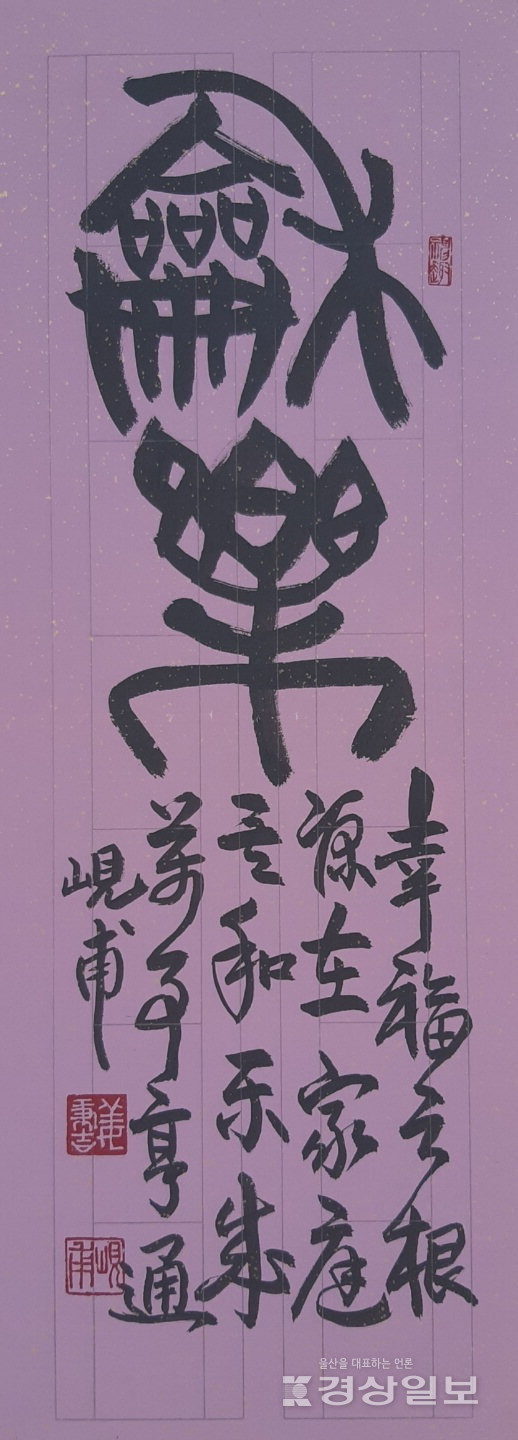 龢樂
幸福之根
源在家庭
之和樂成
萬事亨通
峴甫
姜秉吉
峴甫
울산을 대표하는 언론
경상일보